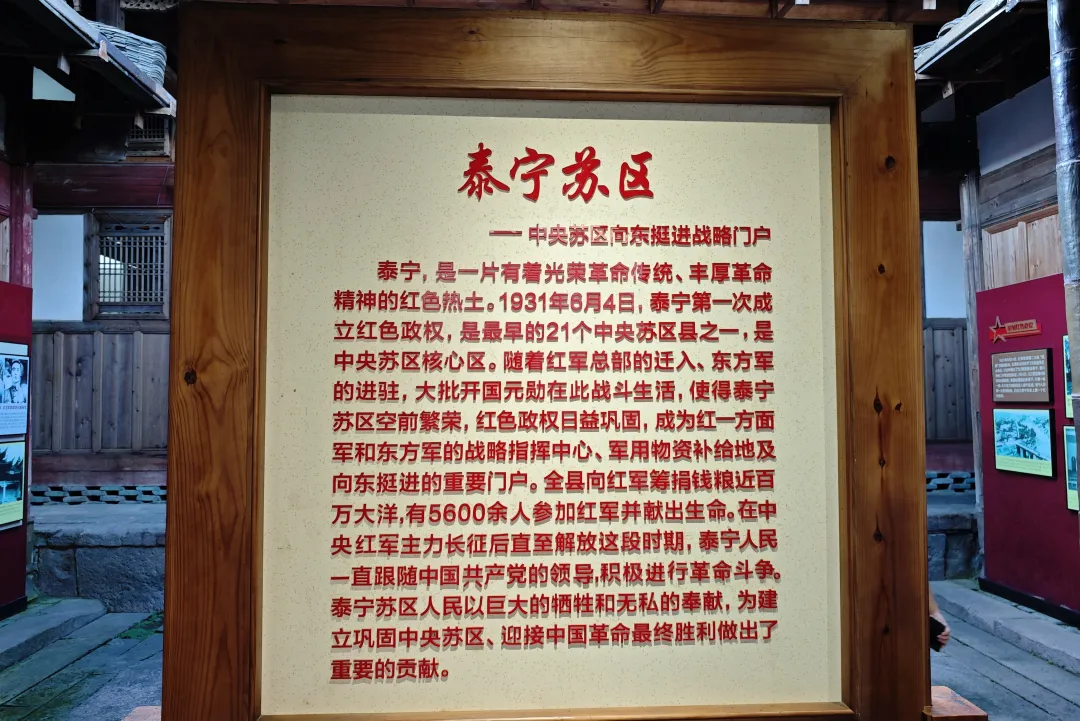 泰宁苏区
——中央苏区向东挺进战略门户
泰宁，是一片有着光荣革命传统、丰厚革命
精神的红色热土。1931年6月4日，泰宁第一次成
立红色政权，是最早的21个中央苏区县之一，是
中央苏区核心区。随着红军总部的迁入、东方军
的进驻，大批开国元勋在此战斗生活，使得泰宁
苏区空前繁荣，红色政权日益巩固，成为红一方面
军和东方军的战略指挥中心、军用物资补给地及
向东挺进的重要门户。全县向红军筹捐钱粮近百
万大洋,有5600余人参加红军并献出生命。在中
央红军主力长征后直至解放这段时期，泰宁人民
一直跟随中国共产党的领导,积极进行革命斗争。
泰宁苏区人民以巨大的牺牲和无私的奉献，为建
立巩固中央苏区、迎接中国革命最终胜利做出了
重要的贡献。